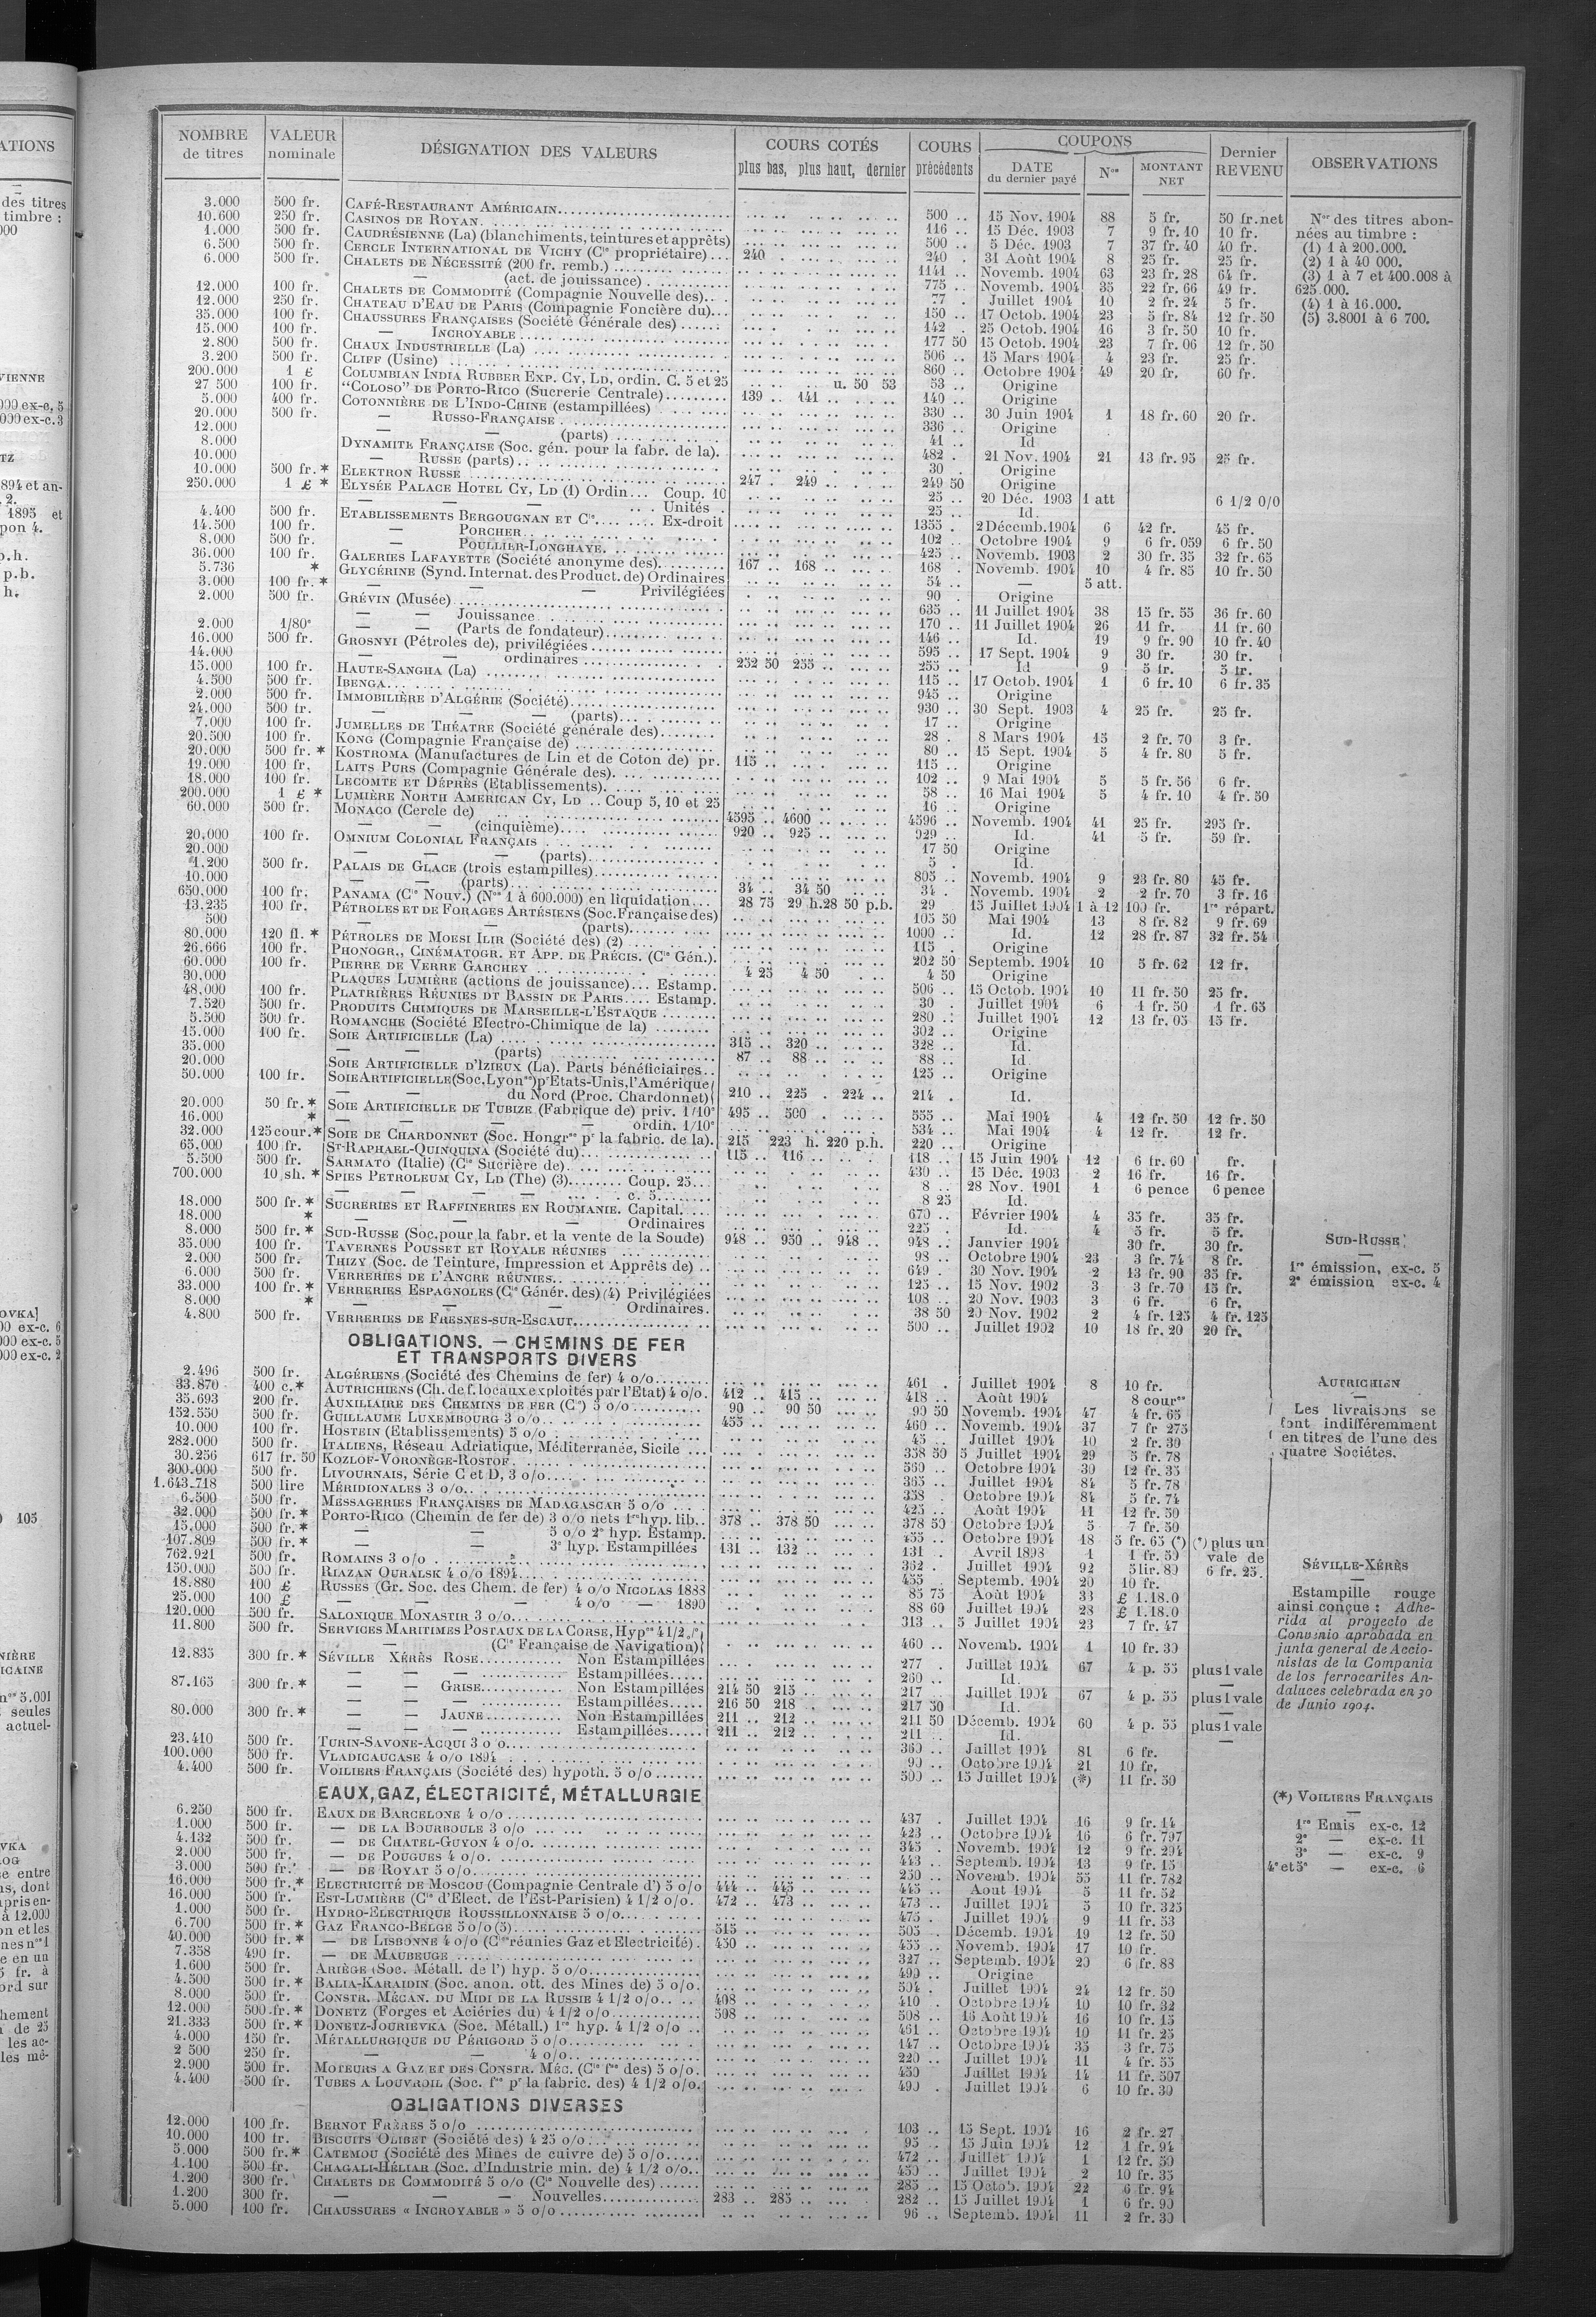 NOMBRE de titres VALEUR nominale DÉSIGNATION DES VALEURS COURS COTÉS plus bas, plus haut, dernier COURS précédents COUPONS DATE du dernier payé Nos MONTANT NET Dernier REVENU OBSERVATIONS
3.000 500 fr. CAFÉ-RESTAURANT AMÉRICAIN 500 .. 15 Nov. 1904 88 5 fr. 50 fr. net
10.600 250 fr. CASINOS DE ROYAN 116 .. 15 Déc. 1903 7 9 fr. 10 10 fr.
1.000 500 fr. CAUDRÉSIENNE (La) (blanchiments, teintures et apprêts) 500 .. 5 Déc. 1903 7 37 fr. 40 40 fr.
6.500 500 fr. CERCLE INTERNATIONAL DE VICHY (Cie propriétaire) 240 240 . 31 Août 1904 8 25 fr. 25 fr.
6.000 500 fr. CHALETS DE NÉCESSITÉ (200 fr. remb.) 1141 .. Novemb. 1904 63 23 fr. 28 64 fr.
— (act. de jouissance) 775 .. Novemb. 1904 35 22 fr. 66 49 fr.
12.000 100 fr. CHALETS DE COMMODITÉ (Compagnie Nouvelle des) 77 . Juillet 1904 10 2 fr. 24 5 fr.
12.000 250 fr. CHATEAU D'EAU DE PARIS (Compagnie Foncière du) 150 .. 17 Octob. 1904 23 5 fr. 84 12 fr. 50
35.000 100 fr. CHAUSSURES FRANÇAISES (Société Générale des) 142 . 25 Octob. 1904 16 3 fr. 50 10 fr.
15.000 100 fr. — INCROYABLE 177 50 15 Octob. 1904 23 7 fr. 06 12 fr. 50
2.800 500 fr. CHAUX INDUSTRIELLE (La) 506 .. 15 Mars 1904 4 23 fr. 25 fr.
3.200 500 fr. CLIFF (Usine) 860 .. Octobre 1904 49 20 fr. 60 fr.
200.000 1 £ COLUMBIAN INDIA RUBBER EXP. CY, LD, ordin. C. 5 et 25 u. 50 53 53 .. Origine
27 500 100 fr. “COLOSO” DE PORTO-RICO (Sucrerie Centrale) 139 .. 141 140 .. Origine
5.000 400 fr. COTONNIÈRE DE L'INDO-CHINE (estampillées) 330 .. 30 Juin 1904 1 18 fr. 60 20 fr.
20.000 500 fr. — RUSSO-FRANÇAISE 336 .. Origine
12.000 — — (parts) 41 .. Id
8.000 DYNAMITE FRANÇAISE (Soc. gén. pour la fabr. de la). 482 . 21 Nov. 1904 21 13 fr. 95 25 fr.
10.000 — RUSSE (parts) 30 . Origine
10.000 500 fr. * ELEKTRON RUSSE 247 . 249 249 50 Origine
250.000 1 £ * ELYSÉE PALACE HOTEL CY, LD (1) Ordin... Coup. 10 25 .. 20 Déc. 1903 1 att 6 1/2 0/0
— — Unités 25 .. Id.
4.400 500 fr. ETABLISSEMENTS BERGOUGNAN ET Cie Ex-droit 1355 . 2 Décemb. 1904 6 42 fr. 45 fr.
14.500 100 fr. — PORCHER 102 . Octobre 1904 9 6 fr. 059 6 fr. 50
8.000 500 fr. — POULLIER-LONGHAYE 425 .. Novemb. 1903 2 30 fr. 35 32 fr. 65
36.000 100 fr. GALERIES LAFAYETTE (Société anonyme des) 167 .. 168 168 . Novemb. 1904 10 4 fr. 85 10 fr. 50
5.736 * GLYCÉRINE (Synd. Internat. des Product. de) Ordinaires 54 .. — 5 att.
3.000 100 fr. * — — Privilégiées 90 . Origine
2.000 500 fr. GRÉVIN (Musée) 635 .. 11 Juillet 1904 38 15 fr. 55 36 fr. 60
— — Jouissance 170 .. 11 Juillet 1904 26 11 fr. 11 fr. 60
2.000 1/80e — — (Parts de fondateur) 146 .. Id. 19 9 fr. 90 10 fr. 40
16.000 500 fr. GROSNYI (Pétroles de), privilégiées 595 .. 17 Sept. 1904 9 30 fr. 30 fr.
14.000 — — ordinaires 252 50 255 .. 255 .. Id 9 5 fr. 5 fr.
15.000 100 fr. HAUTE-SANGHA (La) 115 .. 17 Octob. 1904 1 6 fr. 10 6 fr. 35
4.500 500 fr. IBENGA 945 .. Origine
2.000 500 fr. IMMOBILIÈRE D'ALGÉRIE (Société) 930 .. 30 Sept. 1903 4 25 fr. 25 fr.
24.000 500 fr. — — — (parts) 17 .. Origine
7.000 100 fr. JUMELLES DE THÉATRE (Société générale des) 28 . 8 Mars 1904 15 2 fr. 70 3 fr.
20.500 100 fr. KONG (Compagnie Française de) 80 .. 15 Sept. 1904 5 4 fr. 80 5 fr.
20.000 500 fr. * KOSTROMA (Manufactures de Lin et de Coton de) pr. 115 115 .. Origine
19.000 100 fr. LAITS PURS (Compagnie Générale des) 102 .. 9 Mai 1904 5 5 fr. 56 6 fr.
18.000 100 fr. LECOMTE ET DÉPRÈS (Etablissements) 58 .. 16 Mai 1904 5 4 fr. 10 4 fr. 50
200.000 1 £ * LUMIÈRE NORTH AMERICAN CY, LD .. Coup 5, 10 et 25 16 .. Origine
60.000 500 fr. MONACO (Cercle de) 4595 .. 4600 4596 .. Novemb. 1904 41 25 fr. 295 fr.
— — (cinquième) 920 .. 925 929 .. Id. 41 5 fr. 59 fr.
20.000 100 fr. OMNIUM COLONIAL FRANÇAIS 17 50 Origine
20.000 — — — (parts) 5 . Id.
1.200 500 fr. PALAIS DE GLACE (trois estampilles) 805 .. Novemb. 1904 9 23 fr. 80 45 fr.
10.000 — — (parts) 34 .. 34 50 34 . Novemb. 1904 2 2 fr. 70 3 fr. 16
650.000 100 fr. PANAMA (Cie Nouv.) (Nos 1 à 600.000) en liquidation 28 75 29 h. 28 50 p.b. 29 15 Juillet 1904 1 à 12 100 fr. 1re répart.
13.235 100 fr. PÉTROLES ET DE FORAGES ARTÉSIENS (Soc. Française des) 105 50 Mai 1904 13 8 fr. 82 9 fr. 69
500 — — (parts) 1000 .. Id. 12 28 fr. 87 32 fr. 54
80.000 120 fl. * PÉTROLES DE MOESI ILIR (Société des) (2) 115 . Origine
26.666 100 fr. PHONOGR., CINÉMATOGR. ET APP. DE PRÉCIS. (Cie Gén.). 202 50 Septemb. 1904 10 5 fr. 62 12 fr.
60.000 100 fr. PIERRE DE VERRE GARCHEY 4 25 4 50 4 50 Origine
30.000 PLAQUES LUMIÈRE (actions de jouissance) Estamp. 506 .. 15 Octob. 1904 10 11 fr. 50 25 fr.
48.000 100 fr. PLATRIÈRES RÉUNIES DT BASSIN DE PARIS Estamp. 30 . Juillet 1904 6 1 fr. 50 1 fr. 65
7.520 500 fr. PRODUITS CHIMIQUES DE MARSEILLE-L'ESTAQUE 280 .. Juillet 1904 12 13 fr. 05 15 fr.
5.500 500 fr. ROMANCHE (Société Electro-Chimique de la) 302 .. Origine
15.000 100 fr. SOIE ARTIFICIELLE (La) 315 .. 320 328 .. Id.
35.000 — — (parts) 87 .. 88 88 .. Id
20.000 SOIE ARTIFICIELLE D'IZIEUX (La). Parts bénéficiaires 125 .. Origine
50.000 100 fr. SOIE ARTIFICIELLE (Soc. Lyonnse) pr Etats-Unis, l'Amérique
— du Nord (Proc. Chardonnet) 210 .. 225 . 224 .. 214 . Id.
20.000 50 fr. * SOIE ARTIFICIELLE DE TUBIZE (Fabrique de) priv. 1/10e 495 .. 500 555 .. Mai 1904 4 12 fr. 50 12 fr. 50
16.000 * — — — ordin. 1/10e 534 .. Mai 1904 4 12 fr. 12 fr.
32.000 125 cour. * SOIE DE CHARDONNET (Soc. Hongrse pr la fabric. de la). 215 223 h. 220 p.h. 220 .. Origine
65.000 100 fr. ST-RAPHAEL-QUINQUINA (Société du) 115 .. 116 118 .. 15 Juin 1904 12 6 fr. 60 fr.
5.500 500 fr. SARMATO (Italie) (Cie Sucrière de) 430 .. 15 Déc. 1903 2 16 fr. 16 fr.
700.000 10 sh. * SPIES PETROLEUM CY, LD (The) (3) Coup. 25 8 .. 28 Nov. 1901 1 6 pence 6 pence
— — — c. 5 8 25 Id.
18.000 500 fr. * SUCRERIES ET RAFFINERIES EN ROUMANIE. Capital. 670 .. Février 1904 4 35 fr. 35 fr.
18.000 * — — — Ordinaires 225 . Id. 4 5 fr. 5 fr.
8.000 500 fr. * SUD-RUSSE (Soc. pour la fabr. et la vente de la Soude) 948 .. 950 .. 948 .. 948 .. Janvier 1904 30 fr. 30 fr.
35.000 100 fr. TAVERNES POUSSET ET ROYALE RÉUNIES 98 .. Octobre 1904 23 3 fr. 74 8 fr.
2.000 500 fr. THIZY (Soc. de Teinture, Impression et Apprêts de) 649 . 30 Nov. 1904 2 13 fr. 90 35 fr.
6.000 500 fr. VERRERIES DE L'ANCRE RÉUNIES 125 .. 15 Nov. 1902 3 3 fr. 70 15 fr.
33.000 100 fr. * VERRERIES ESPAGNOLES (Cie Génér. des) (4) Privilégiées 108 .. 20 Nov. 1903 3 6 fr. 6 fr.
8.000 * — — Ordinaires. 38 50 20 Nov. 1902 2 4 fr. 125 4 fr. 125
4.800 500 fr. VERRERIES DE FRESNES-SUR-ESCAUT 500 .. Juillet 1902 10 18 fr. 20 20 fr.
OBLIGATIONS. — CHEMINS DE FER
ET TRANSPORTS DIVERS
2.496 500 fr. ALGÉRIENS (Société des Chemins de fer) 4 o/o 461 . Juillet 1904 8 10 fr.
33.870 400 c. * AUTRICHIENS (Ch. de f. locaux exploités par l'Etat) 4 o/o. 412 .. 415 418 .. Août 1904 8 cour
35.693 200 fr. AUXILIAIRE DES CHEMINS DE FER (Cie) 5 o/o 90 .. 90 50 90 50 Novemb. 1904 47 4 fr. 65
152.550 500 fr. GUILLAUME LUXEMBOURG 3 o/o 455 460 .. Novemb. 1904 37 7 fr 275
10.000 100 fr. HOSTEIN (Etablissements) 5 o/o 45 .. Juillet 1904 10 2 fr. 30
282.000 500 fr. ITALIENS, Réseau Adriatique, Méditerranée, Sicile 358 50 5 Juillet 1904 29 5 fr. 78
30.256 617 fr. 50 KOZLOF-VORONÈGE-ROSTOF 560 .. Octobre 1904 30 12 fr. 35
300.000 500 fr. LIVOURNAIS, Série C et D, 3 o/o 365 .. Juillet 1904 84 5 fr. 78
1.643.718 500 lire MÉRIDIONALES 3 o/o 358 . Octobre 1904 84 5 fr. 74
6.500 500 fr. MESSAGERIES FRANÇAISES DE MADAGASCAR 5 o/o 425 .. Août 1904 11 12 fr. 50
32.000 500 fr. * PORTO-RICO (Chemin de fer de) 3 o/o nets 1re hyp. lib. 378 .. 378 50 378 50 Octobre 1904 5 7 fr. 50
15.000 500 fr. * — — 5 o/o 2e hyp. Estamp. 455 .. Octobre 1904 18 5 fr. 65 (*) (*) plus un
107.809 500 fr. * — — 3e hyp. Estampillées 131 .. 132 131 . Avril 1898 1 1 fr. 50 vale de
762.921 500 fr. ROMAINS 3 o/o 362 . Juillet 1904 92 5 lir. 80 6 fr. 25.
150.000 500 fr. RIAZAN OURALSK 4 o/o 1894 455 .. Septemb. 1904 20 10 fr.
18.880 100 £ RUSSES (Gr. Soc. des Chem. de fer) 4 o/o NICOLAS 1888 85 75 Août 1904 33 £ 1.18.0
25.000 100 £ — — — 4 o/o — 1890 88 60 Juillet 1904 28 £ 1.18.0
120.000 500 fr. SALONIQUE MONASTIR 3 o/o 313 .. 5 Juillet 1904 23 7 fr. 47
11.800 500 fr. SERVICES MARITIMES POSTAUX DE LA CORSE, Hypres 4 1/2 o/o
— (Cie Française de Navigation) 460 .. Novemb. 1904 1 10 fr. 30
12.835 300 fr. * SÉVILLE XÉRÈS ROSE Non Estampillées 277 . Juillet 1904 67 4 p. 55 plus 1 vale
— — — Estampillées 260 .. Id. —
87.165 300 fr. * — — GRISE Non Estampillées 214 50 215 217 . Juillet 1904 67 4 p. 55 plus 1 vale
— — — Estampillées 216 50 218 217 50 Id. —
80.000 300 fr. * — — JAUNE Non Estampillées 211 .. 212 211 50 Décemb. 1904 60 4 p. 55 plus 1 vale
— — — Estampillées 211 .. 212 211 .. Id. —
23.410 500 fr. TURIN-SAVONE-ACQUI 3 o/o 360 .. Juillet 1904 81 6 fr.
100.000 500 fr. VLADICAUCASE 4 o/o 1894 90 .. Octobre 1904 21 10 fr.
4.400 500 fr. VOILIERS FRANÇAIS (Société des) hypoth. 5 o/o 500 .. 15 Juillet 1904 (*) 11 fr. 50
EAUX, GAZ, ÉLECTRICITÉ, MÉTALLURGIE
6.250 500 fr. EAUX DE BARCELONE 4 o/o 437 . Juillet 1904 16 9 fr. 14
1.000 500 fr. — DE LA BOURBOULE 3 o/o 423 .. Octobre 1904 16 6 fr. 797
4.132 500 fr. — DE CHATEL-GUYON 4 o/o 345 . Novemb. 1904 12 9 fr. 294
2.000 500 fr. — DE POUGUES 4 o/o 443 .. Septemb. 1904 13 9 fr. 15
3.000 500 fr. — DE ROYAT 5 o/o 250 .. Novemb. 1904 55 11 fr. 782
16.000 500 fr. * ELECTRICITÉ DE MOSCOU (Compagnie Centrale d') 5 o/o 444 .. 445 445 .. Aout 1904 5 11 fr. 52
16.000 500 fr. EST-LUMIÈRE (Cie d'Elect. de l'Est-Parisien) 4 1/2 o/o. 472 .. 473 473 .. Juillet 1904 5 10 fr. 325
1.000 500 fr. HYDRO-ELECTRIQUE ROUSSILLONNAISE 5 o/o 475 . Juillet 1904 9 11 fr. 53
6.700 500 fr. * GAZ FRANCO-BELGE 5 o/o (5) 515 505 .. Décemb. 1904 19 12 fr. 50
40.000 500 fr. * — DE LISBONNE 4 o/o (Cies réunies Gaz et Electricité). 450 455 .. Novemb. 1904 17 10 fr.
7.358 490 fr. — DE MAUBEUGE 327 .. Septemb. 1904 20 6 fr. 88
1.600 500 fr. ARIÈGE (Soc. Métall. de l') hyp. 5 o/o 490 .. Origine
4.500 500 fr. * BALIA-KARAIDIN (Soc. anon. ott. des Mines de) 5 o/o. 504 . Juillet 1904 24 12 fr. 50
8.000 500 fr. CONSTR. MÉCAN. DU MIDI DE LA RUSSIE 4 1/2 o/o 408 410 . Octobre 1904 10 10 fr. 32
12.000 500 fr. * DONETZ (Forges et Aciéries du) 4 1/2 o/o 508 508 .. 16 Août 1904 16 10 fr. 15
21.333 500 fr. * DONETZ-JOURIEVKA (Soc. Métall.) 1re hyp. 4 1/2 o/o 461 .. Octobre 1904 10 11 fr. 25
4.000 150 fr. MÉTALLURGIQUE DU PÉRIGORD 5 o/o 147 .. Octobre 1904 35 3 fr. 75
2 500 250 fr. — — 4 o/o 220 .. Juillet 1904 11 4 fr. 55
2.900 500 fr. MOTEURS A GAZ ET DES CONSTR. MÉC. (Cie fse des) 5 o/o. 450 Juillet 1904 14 11 fr. 507
4.400 500 fr. TUBES A LOUVROIL (Soc. fse pr la fabric. des) 4 1/2 o/o. 490 . Juillet 1904 6 10 fr. 30
OBLIGATIONS DIVERSES
12.000 100 fr. BERNOT FRÈRES 5 o/o 103 .. 15 Sept. 1904 16 2 fr. 27
10.000 100 fr. BISCUITS OLIBET (Société des) 4 25 o/o 95 .. 15 Juin 1904 12 1 fr. 94
5.000 500 fr. * CATEMOU (Société des Mines de cuivre de) 5 o/o 472 .. Juillet 1904 1 12 fr. 50
1.100 500 fr. CHAGALI-HÉLIAR (Soc. d'Industrie min. de) 4 1/2 o/o 450 .. Juillet 1904 2 10 fr. 35
1.200 300 fr. CHALETS DE COMMODITÉ 5 o/o (Cie Nouvelle des) 285 .. 15 Octob. 1904 22 6 fr. 94
1.200 300 fr. — — Nouvelles 283 .. 285 282 .. 15 Juillet 1904 1 6 fr. 90
5.000 100 fr. CHAUSSURES « INCROYABLE » 5 o/o 96 .. Septemb. 1904 11 2 fr. 30
Nos des titres abon-
nées au timbre :
(1) 1 à 200.000.
(2) 1 à 40 000.
(3) 1 à 7 et 400.008 à
625 000.
(4) 1 à 16.000.
(5) 3.8001 à 6 700.
SUD-RUSSE
1re émission, ex-c. 5
2e émission ex-c. 4
AUTRICHIEN
Les livraisons se
font indifféremment
en titres de l'une des
quatre Sociétés.
SÉVILLE-XÉRÈS
Estampille rouge
ainsi conçue : Adhe-
rida al proyecto de
Convenio aprobada en
junta general de Accio-
nistas de la Compania
de los ferrocariles An-
daluces celebrada en 30
de Junio 1904.
(*) VOILIERS FRANÇAIS
1re Emis ex-c. 12
2e — ex-c. 11
3e — ex-c. 9
4e et 5e — ex-c. 6
ATIONS
des titres
timbre :
000
VIENNE
000 ex-c. 5
000 ex-c. 3
TZ
1894 et an-
2.
1895 et
pon 4.
p.h.
p.b.
h.
OVKA]
00 ex-c. 6
000 ex-c. 5
000 ex-c. 2
105
NIÈRE
ICAINE
nos 5.001
seules
actuel-
VKA
OG
e entre
ns, dont
apris en-
à 12.000
on et les
nes no 1
e en un
5 fr. à
ord sur
hement
de 25
les ac-
les mê-